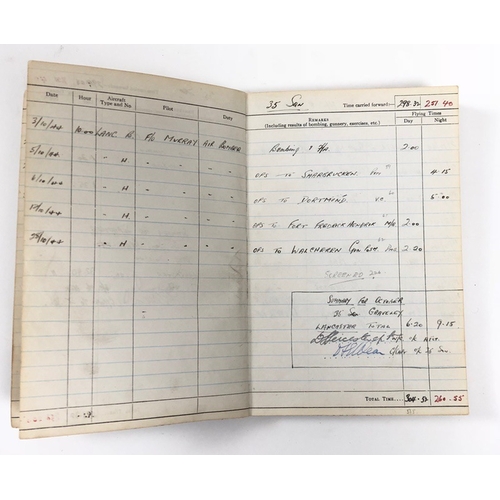 Date Hour Aircraft Type and No Pilot Duty
3/10/44 10.00 LANC A. F/L MURRAY AIR BOMBER
5/10/44 " N " "
6/10/44 " N " "
12/10/44 " N " "
28/10/44 " N " "
35 Sqn Time carried forward:— 298.32 251 40
REMARKS
(Including results of bombing, gunnery, exercises, etc.)
Flying Times
Day Night
Bombing 2.00
OPS — TO SAARBRUCKEN 4.15
OPS TO DORTMUND V.C. 5.00
OPS TO FORT FREDRICK HENDRICK 2.00
OPS TO WALCHEREN 2.20
SUMMARY FOR OCTOBER
35 Sqn GRAVELEY
LANCASTER TOTAL 6.20 9.15
of 35 Sqn
TOTAL TIME.... 304.52 260.55